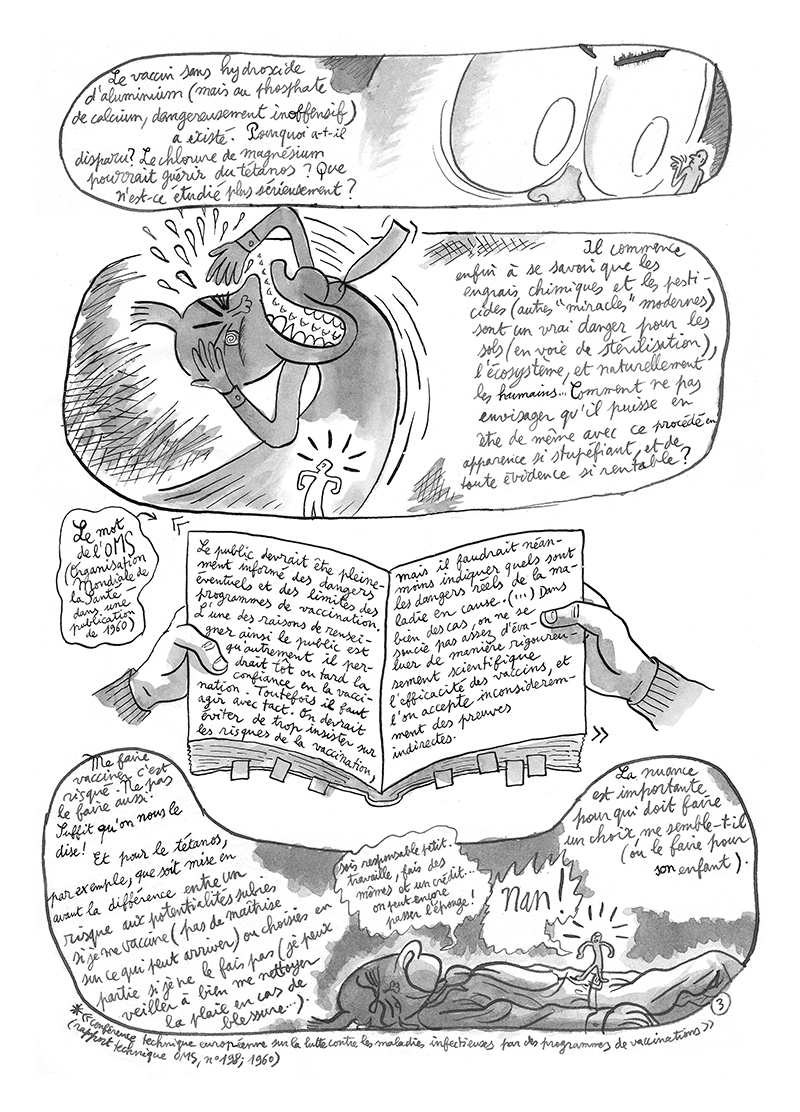 Le vaccin sans hydroxide
d'aluminium (mais au phosphate
de calcium, dangereusement inoffensif)
a existé. Pourquoi a-t-il
disparu? Le chlorure de magnésium
pourrait guérir du tétanos? Que
n'est-ce étudié plus sérieusement?
Il commence
enfin à se savoir que les
engrais chimiques et les pesti-
cides (autres "miracles" modernes)
sont un vrai danger pour les
sols (en voie de stérilisation),
l'écosystème, et naturellement
les humains... Comment ne pas
envisager qu'il puisse en
être de même avec ce procédé en
apparence si stupéfiant, et de
toute évidence si rentable?
Le mot
de l'OMS
(Organisation
Mondiale de
la Santé
dans une
publication
de 1960)
«
Le public devrait être pleine-
ment informé des dangers
éventuels et des limites des
programmes de vaccination.
L'une des raisons de rensei-
gner ainsi le public est
qu'autrement il per-
drait tôt ou tard la
confiance en la vacci-
nation. Toutefois il faut
agir avec tact. On devrait
éviter de trop insister sur
les risques de la vaccination,
mais il faudrait néan-
moins indiquer quels sont
les dangers réels de la ma-
ladie en cause. (...) Dans
bien des cas, on ne se
soucie pas assez d'éva-
luer de manière rigoureu-
sement scientifique
l'efficacité des vaccins, et
l'on accepte inconsidérem-
ment des preuves
indirectes.
»
Me faire
vacciner c'est
risqué. Ne pas
le faire aussi.
Suffit qu'on nous le
dise!
Et pour le tétanos,
par exemple, que soit mise en
avant la différence entre un
risque aux potentialités subies
si je me vaccine (pas de maîtrise
sur ce qui peut arriver) ou choisies en
partie si je ne le fais pas (je peux
veiller à bien me nettoyer
la plaie en cas de
blessure...).
sois responsable petit.
travaille, fais des
mômes et un crédit...
on peut encore
passer l'éponge!
Nan!
La nuance
est importante
pour qui doit faire
un choix, me semble-t-il
(ou le faire pour
son enfant).
3
* «conférence technique européenne sur la lutte contre les maladies infectieuses par des programmes de vaccinations»
(rapport technique OMS, n°198, 1960)